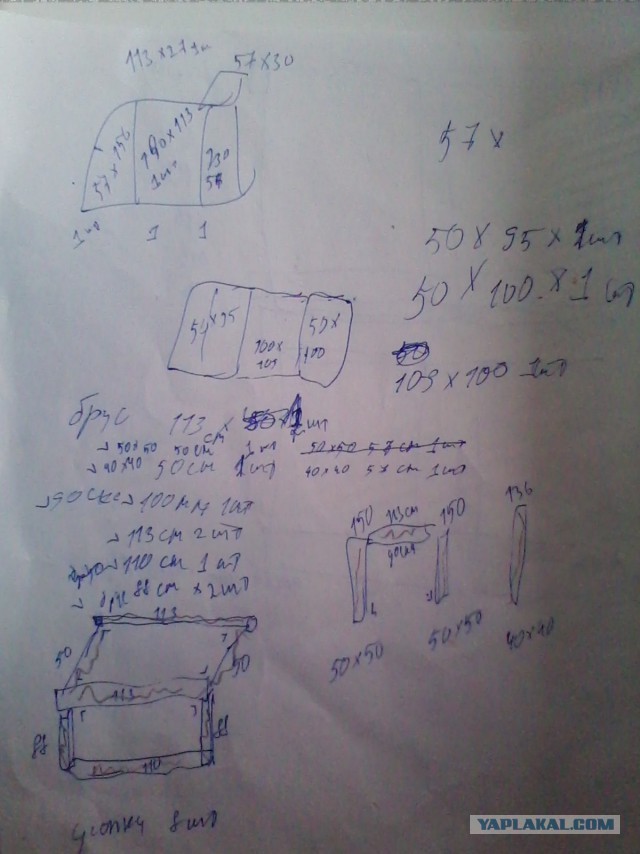 57×30
57×
57×156
190×113
1 шт
230
1 шт
1
1
50×95×1 шт
50×100×1 шт
54×95
100×
109
50×
100
109×100 1 шт
брус 113×
50×50 50 см 1 шт
50×50 57 см 1 шт
40×40 50 см 1 шт
40×40 57 см 1 шт
100 мм 1 шт
113 см 2 шт
110 см 1 шт
брус 88 см × 2 шт
150
113 см
150
136
50×50
50×50
40×40
113
50
50
113
88
88
110
8 шт
YAPLAKAL.COM